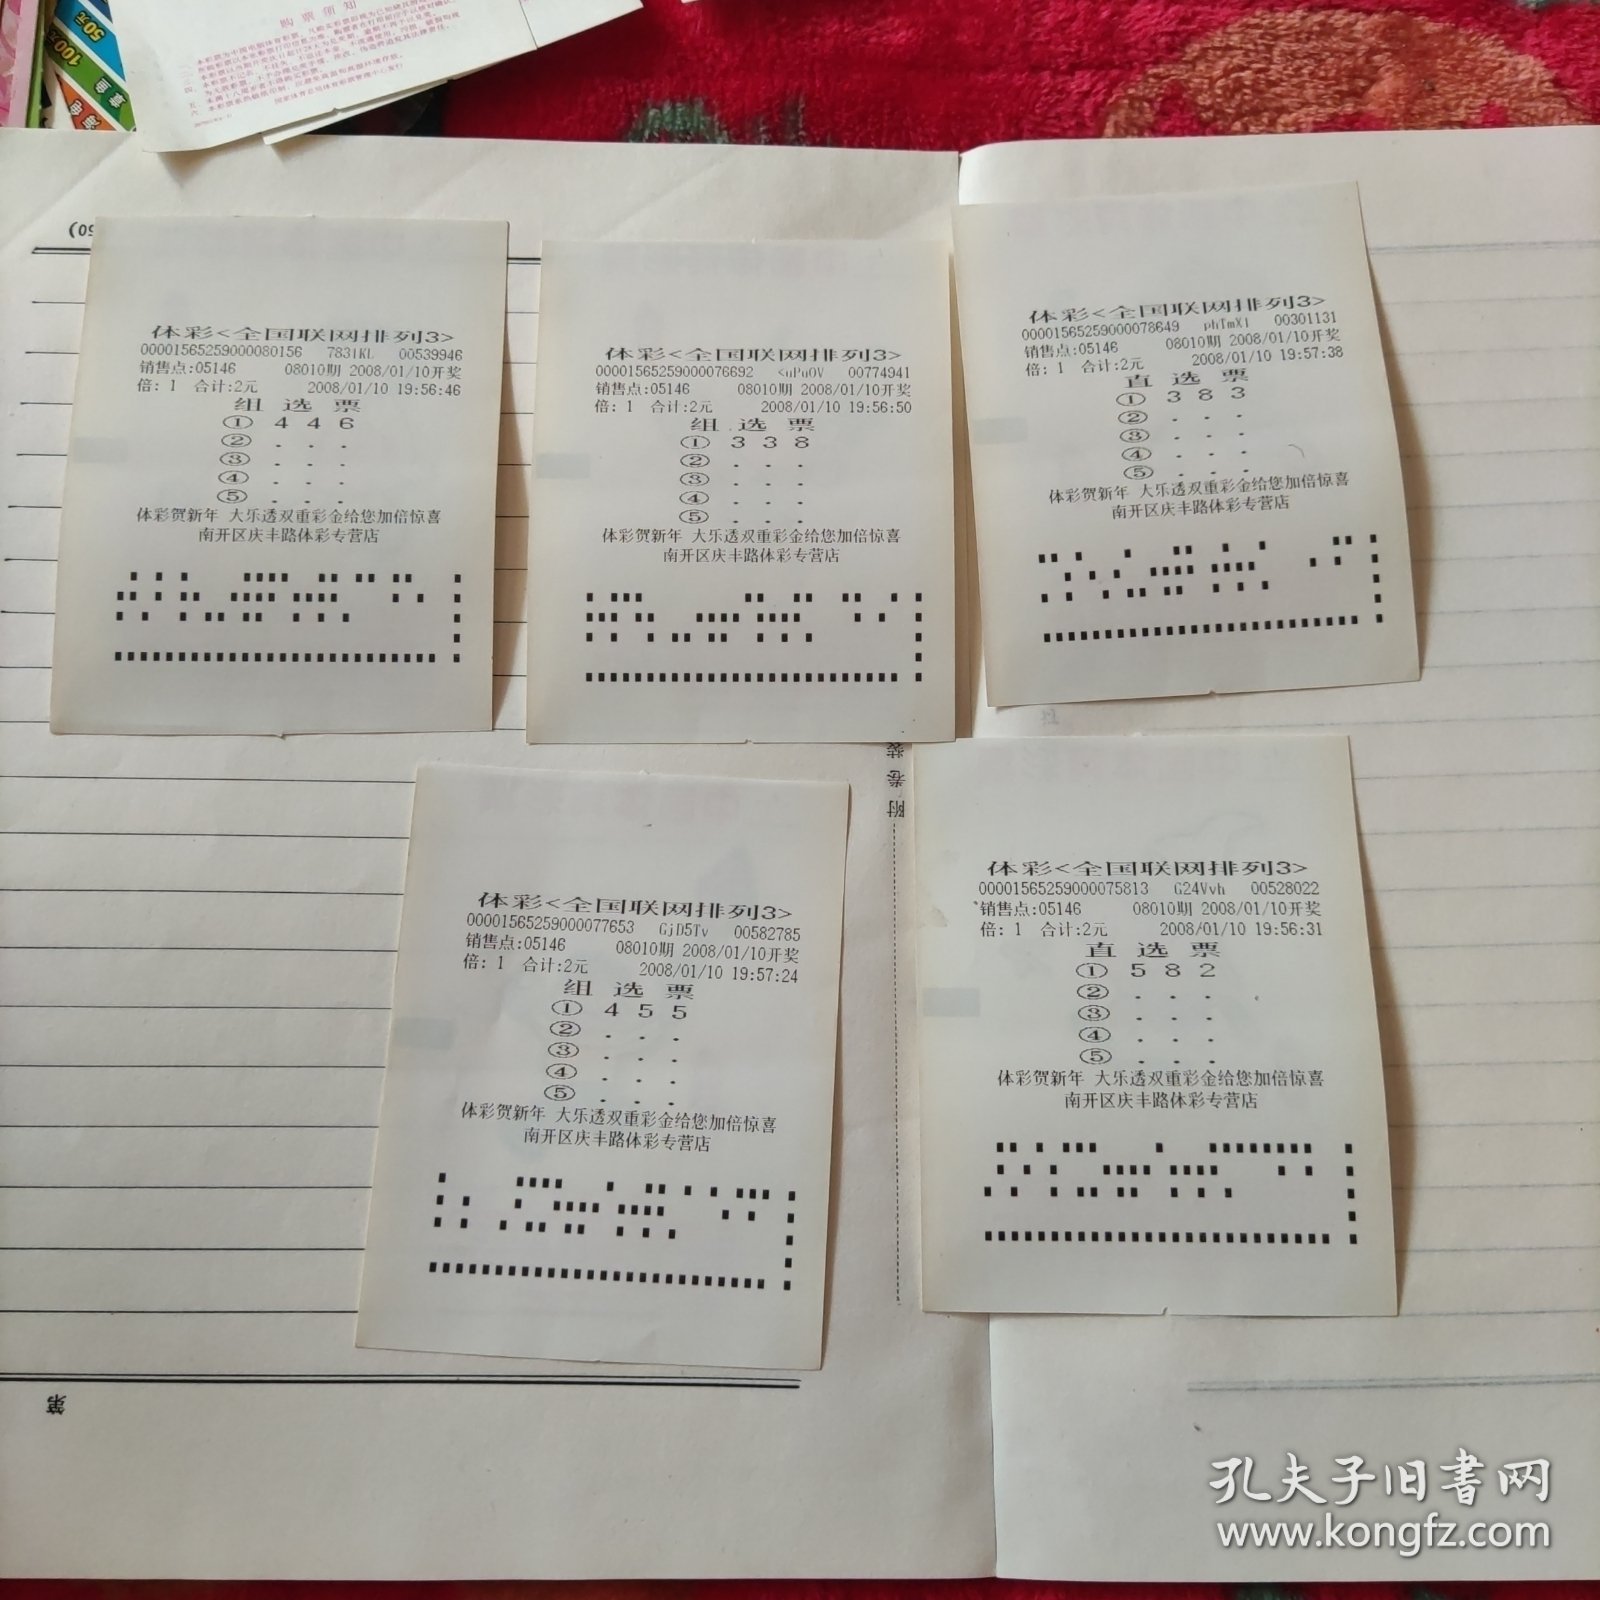 购票须知
100元
50元
体彩<全国联网排列3>
00001565259000080156 7831KL 00539946
销售点:05146 08010期 2008/01/10开奖
倍: 1 合计:2元 2008/01/10 19:56:46
组 选 票
① 4 4 6
② . . .
③ . . .
④ . . .
⑤ . . .
体彩贺新年 大乐透双重彩金给您加倍惊喜
南开区庆丰路体彩专营店
体彩<全国联网排列3>
00001565259000076692 <uPuOV 00774941
销售点:05146 08010期 2008/01/10开奖
倍: 1 合计:2元 2008/01/10 19:56:50
组 选 票
① 3 3 8
② . . .
③ . . .
④ . . .
⑤ . . .
体彩贺新年 大乐透双重彩金给您加倍惊喜
南开区庆丰路体彩专营店
体彩<全国联网排列3>
00001565259000078649 phTmX1 00301131
销售点:05146 08010期 2008/01/10开奖
倍: 1 合计:2元 2008/01/10 19:57:38
直 选 票
① 3 8 3
② . . .
③ . . .
④ . . .
⑤ . . .
体彩贺新年 大乐透双重彩金给您加倍惊喜
南开区庆丰路体彩专营店
附 卷 装
体彩<全国联网排列3>
00001565259000077653 GjD5Tv 00582785
销售点:05146 08010期 2008/01/10开奖
倍: 1 合计:2元 2008/01/10 19:57:24
组 选 票
① 4 5 5
② . . .
③ . . .
④ . . .
⑤ . . .
体彩贺新年 大乐透双重彩金给您加倍惊喜
南开区庆丰路体彩专营店
体彩<全国联网排列3>
00001565259000075813 G24Vvh 00528022
销售点:05146 08010期 2008/01/10开奖
倍: 1 合计:2元 2008/01/10 19:56:31
直 选 票
① 5 8 2
② . . .
③ . . .
④ . . .
⑤ . . .
体彩贺新年 大乐透双重彩金给您加倍惊喜
南开区庆丰路体彩专营店
第
孔夫子旧书网
www.kongfz.com